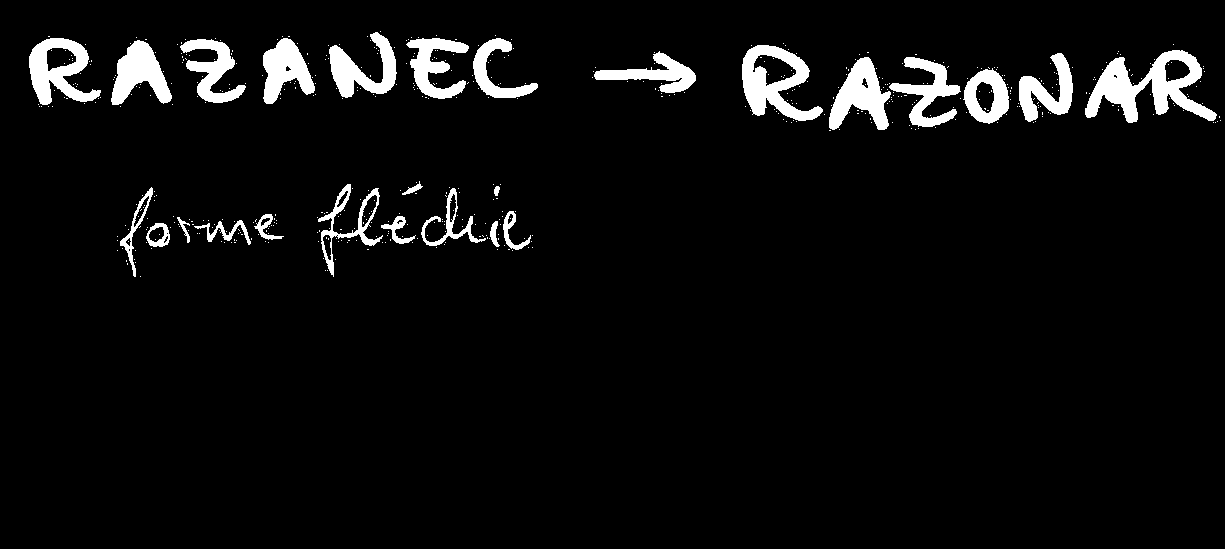 RAZANEC → RAZONAR
forme fléchie